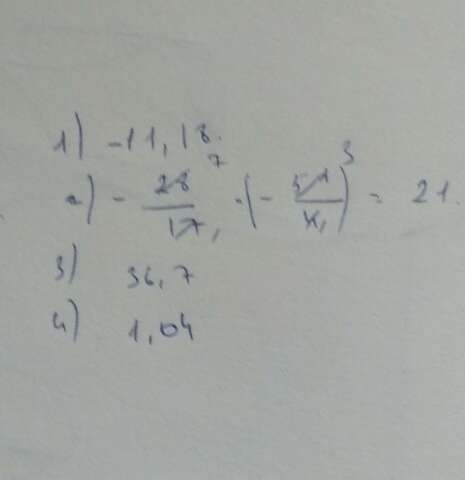 1) -11,18.
2) - 28/17 · (- 51/4) = 21.
7 1 3 1
3) 36,7
4) 1,04